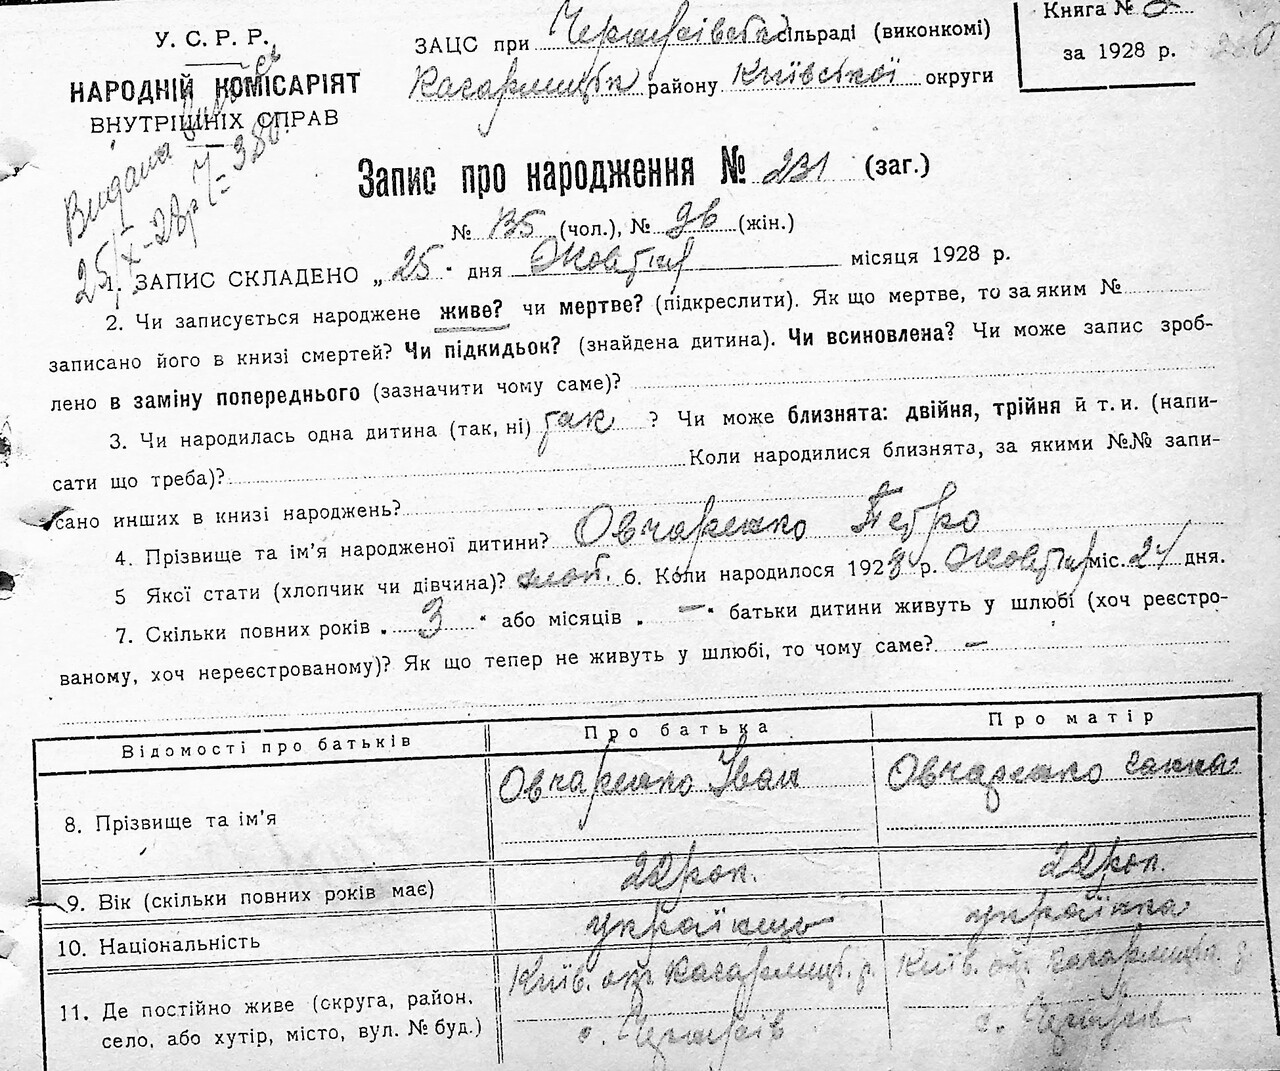 У. С. Р. Р.
НАРОДНІЙ КОМІСАРІЯТ
ВНУТРІШНІХ СПРАВ
ЗАЦС при сільраді (виконкомі)
Кагарлицьк району Київської округи
Книга № 2
за 1928 р.
260
Видана
25/X-28р
Запис про народження № 231 (заг.)
№ 135 (чол.), № 96 (жін.)
1. ЗАПИС СКЛАДЕНО „ 25 " дня Жовтня місяця 1928 р.
2. Чи записується народжене живе? чи мертве? (підкреслити). Як що мертве, то за яким №
записано його в книзі смертей? Чи підкидьок? (знайдена дитина). Чи всиновлена? Чи може запис зроб-
лено в заміну попереднього (зазначити чому саме)?
3. Чи народилась одна дитина (так, ні) так ? Чи може близнята: двійня, трійня й т. и. (напи-
сати що треба)? Коли народилися близнята, за якими №№ запи-
сано инших в книзі народжень?
4. Прізвище та ім'я народженої дитини? Овчаренко Петро
5 Якої стати (хлопчик чи дівчина)? хлоп. 6. Коли народилося 1928 р. Жовтня міс. 24 дня.
7. Скільки повних років „ 3 " або місяців „ — " батьки дитини живуть у шлюбі (хоч реєстро-
ваному, хоч нереєстрованому)? Як що тепер не живуть у шлюбі, то чому саме? —
Відомості про батьків Про батька Про матір
8. Прізвище та ім'я Овчаренко Іван Овчаренко Ганна
9. Вік (скільки повних років має) 22 рок. 22 рок.
10. Національність українець українка
11. Де постійно живе (округа, район, Київ. окр. Кагарлицьк. р. Київ. окр. Кагарлицьк. р.
село, або хутір, місто, вул. № буд.) с. с.